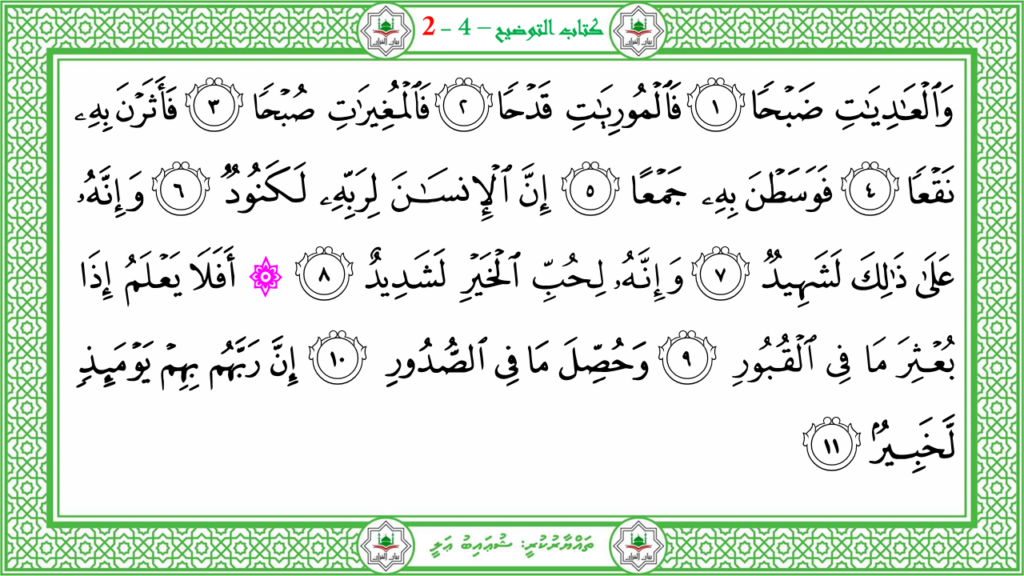 كتاب التوضيح – 4 - 2
وَٱلۡعَٰدِيَٰتِ ضَبۡحٗا ١ فَٱلۡمُورِيَٰتِ قَدۡحٗا ٢ فَٱلۡمُغِيرَٰتِ صُبۡحٗا ٣ فَأَثَرۡنَ بِهِۦ
نَقۡعٗا ٤ فَوَسَطۡنَ بِهِۦ جَمۡعًا ٥ إِنَّ ٱلۡإِنسَٰنَ لِرَبِّهِۦ لَكَنُودٞ ٦ وَإِنَّهُۥ
عَلَىٰ ذَٰلِكَ لَشَهِيدٞ ٧ وَإِنَّهُۥ لِحُبِّ ٱلۡخَيۡرِ لَشَدِيدٌ ٨ ۞ أَفَلَا يَعۡلَمُ إِذَا
بُعۡثِرَ مَا فِي ٱلۡقُبُورِ ٩ وَحُصِّلَ مَا فِي ٱلصُّدُورِ ١٠ إِنَّ رَبَّهُم بِهِمۡ يَوۡمَئِذٖ
لَّخَبِيرُۢ ١١
ތައްޔާރުކުރީ: ޝުޢައިބު ޢަލީ